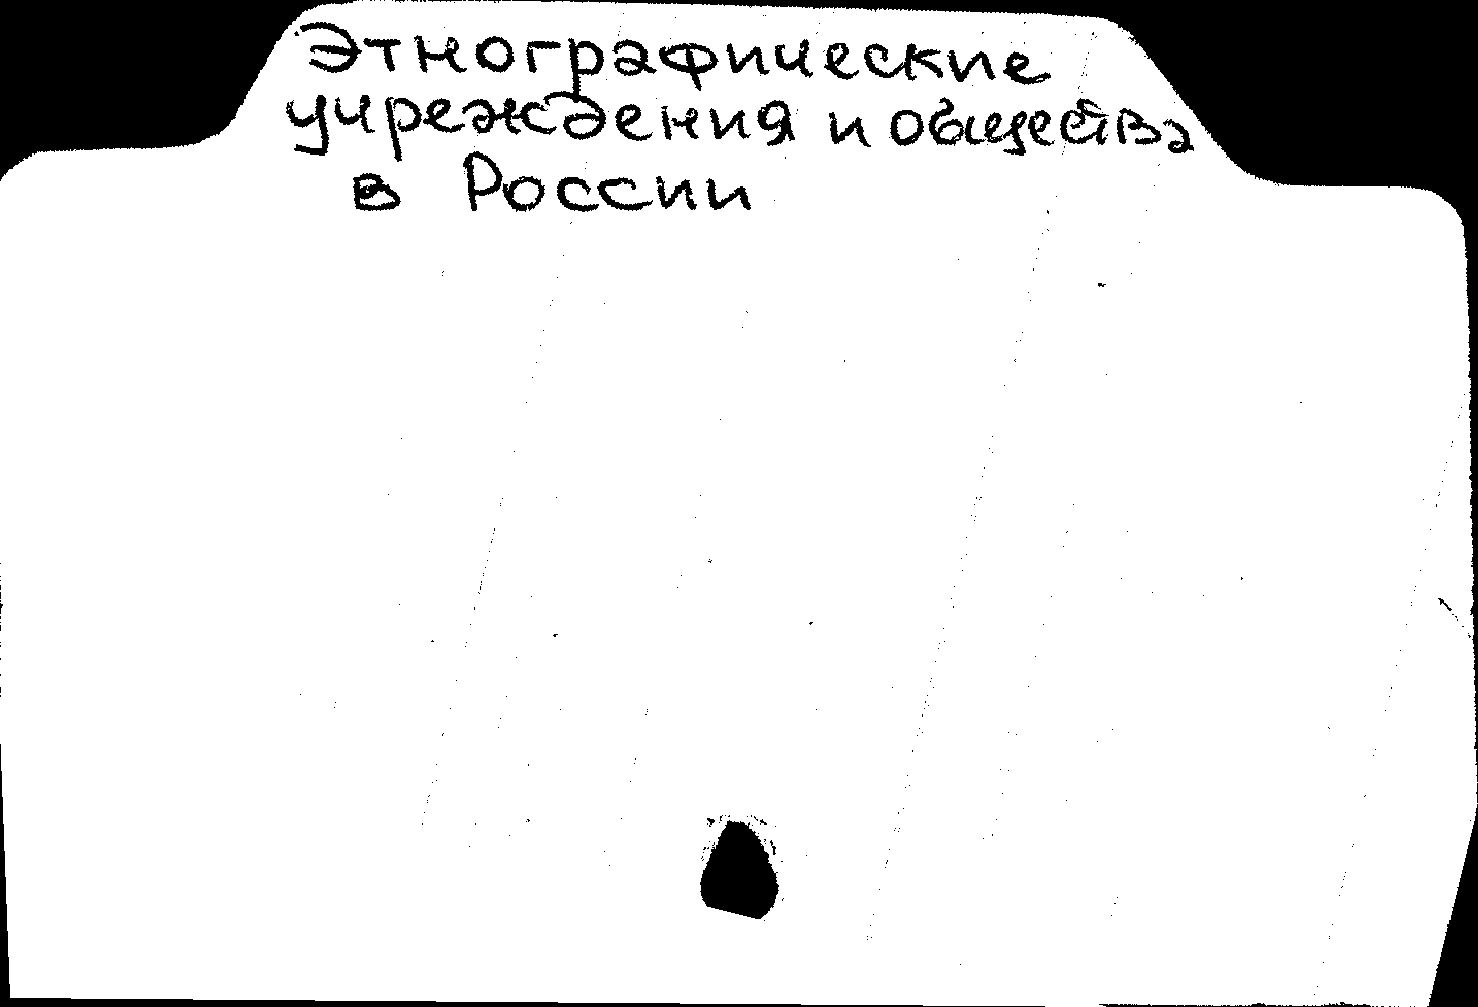 Этнографические
учреждения и общества
в России